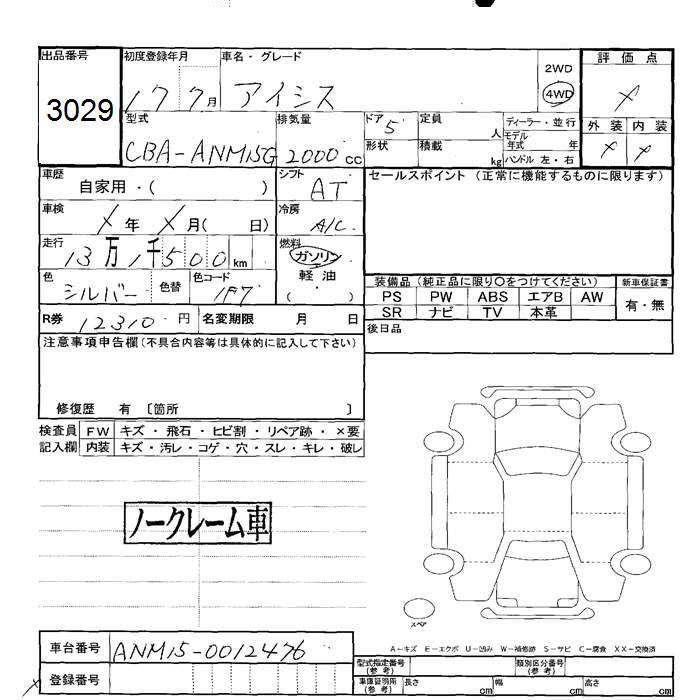 出品番号 初度登録年月 車名・グレード 評価点
3029 17 7月 アイシス 2WD 4WD ×
型式 排気量 ドア 5 定員 人 ディーラー・並行 外装 内装
CBA-ANM15G 2000cc 形状 積載 kg モデル年式 年 × ×
ハンドル 左・右
車歴 自家用・( ) シフト AT セールスポイント (正常に機能するものに限ります)
車検 ×年 ×月( 日) 冷房 A/C
走行 13万1千500km 燃料 ガソリン
軽油
( )
色 シルバー 色替 色コード 1F7
装備品 (純正品に限り○をつけてください) 新車保証書
PS PW ABS エアB AW 有・無
SR ナビ TV 本革
R券 12310円 名変期限 月 日
後日品
注意事項申告欄(不具合内容等は具体的に記入して下さい)
修復歴 有 〔箇所 〕
検査員 FW キズ・飛石・ヒビ割・リペア跡・×要
記入欄 内装 キズ・汚レ・コゲ・穴・スレ・キレ・破レ
ノークレーム車
スペア
A-キズ E-エクボ U-凹み W-補修跡 S-サビ C-腐食 XX-交換済
車台番号 ANM15-0012476
登録番号
型式指定番号(参考) 類別区分番号(参考)
車庫証明用(参考) 長さ cm 幅 cm 高さ cm